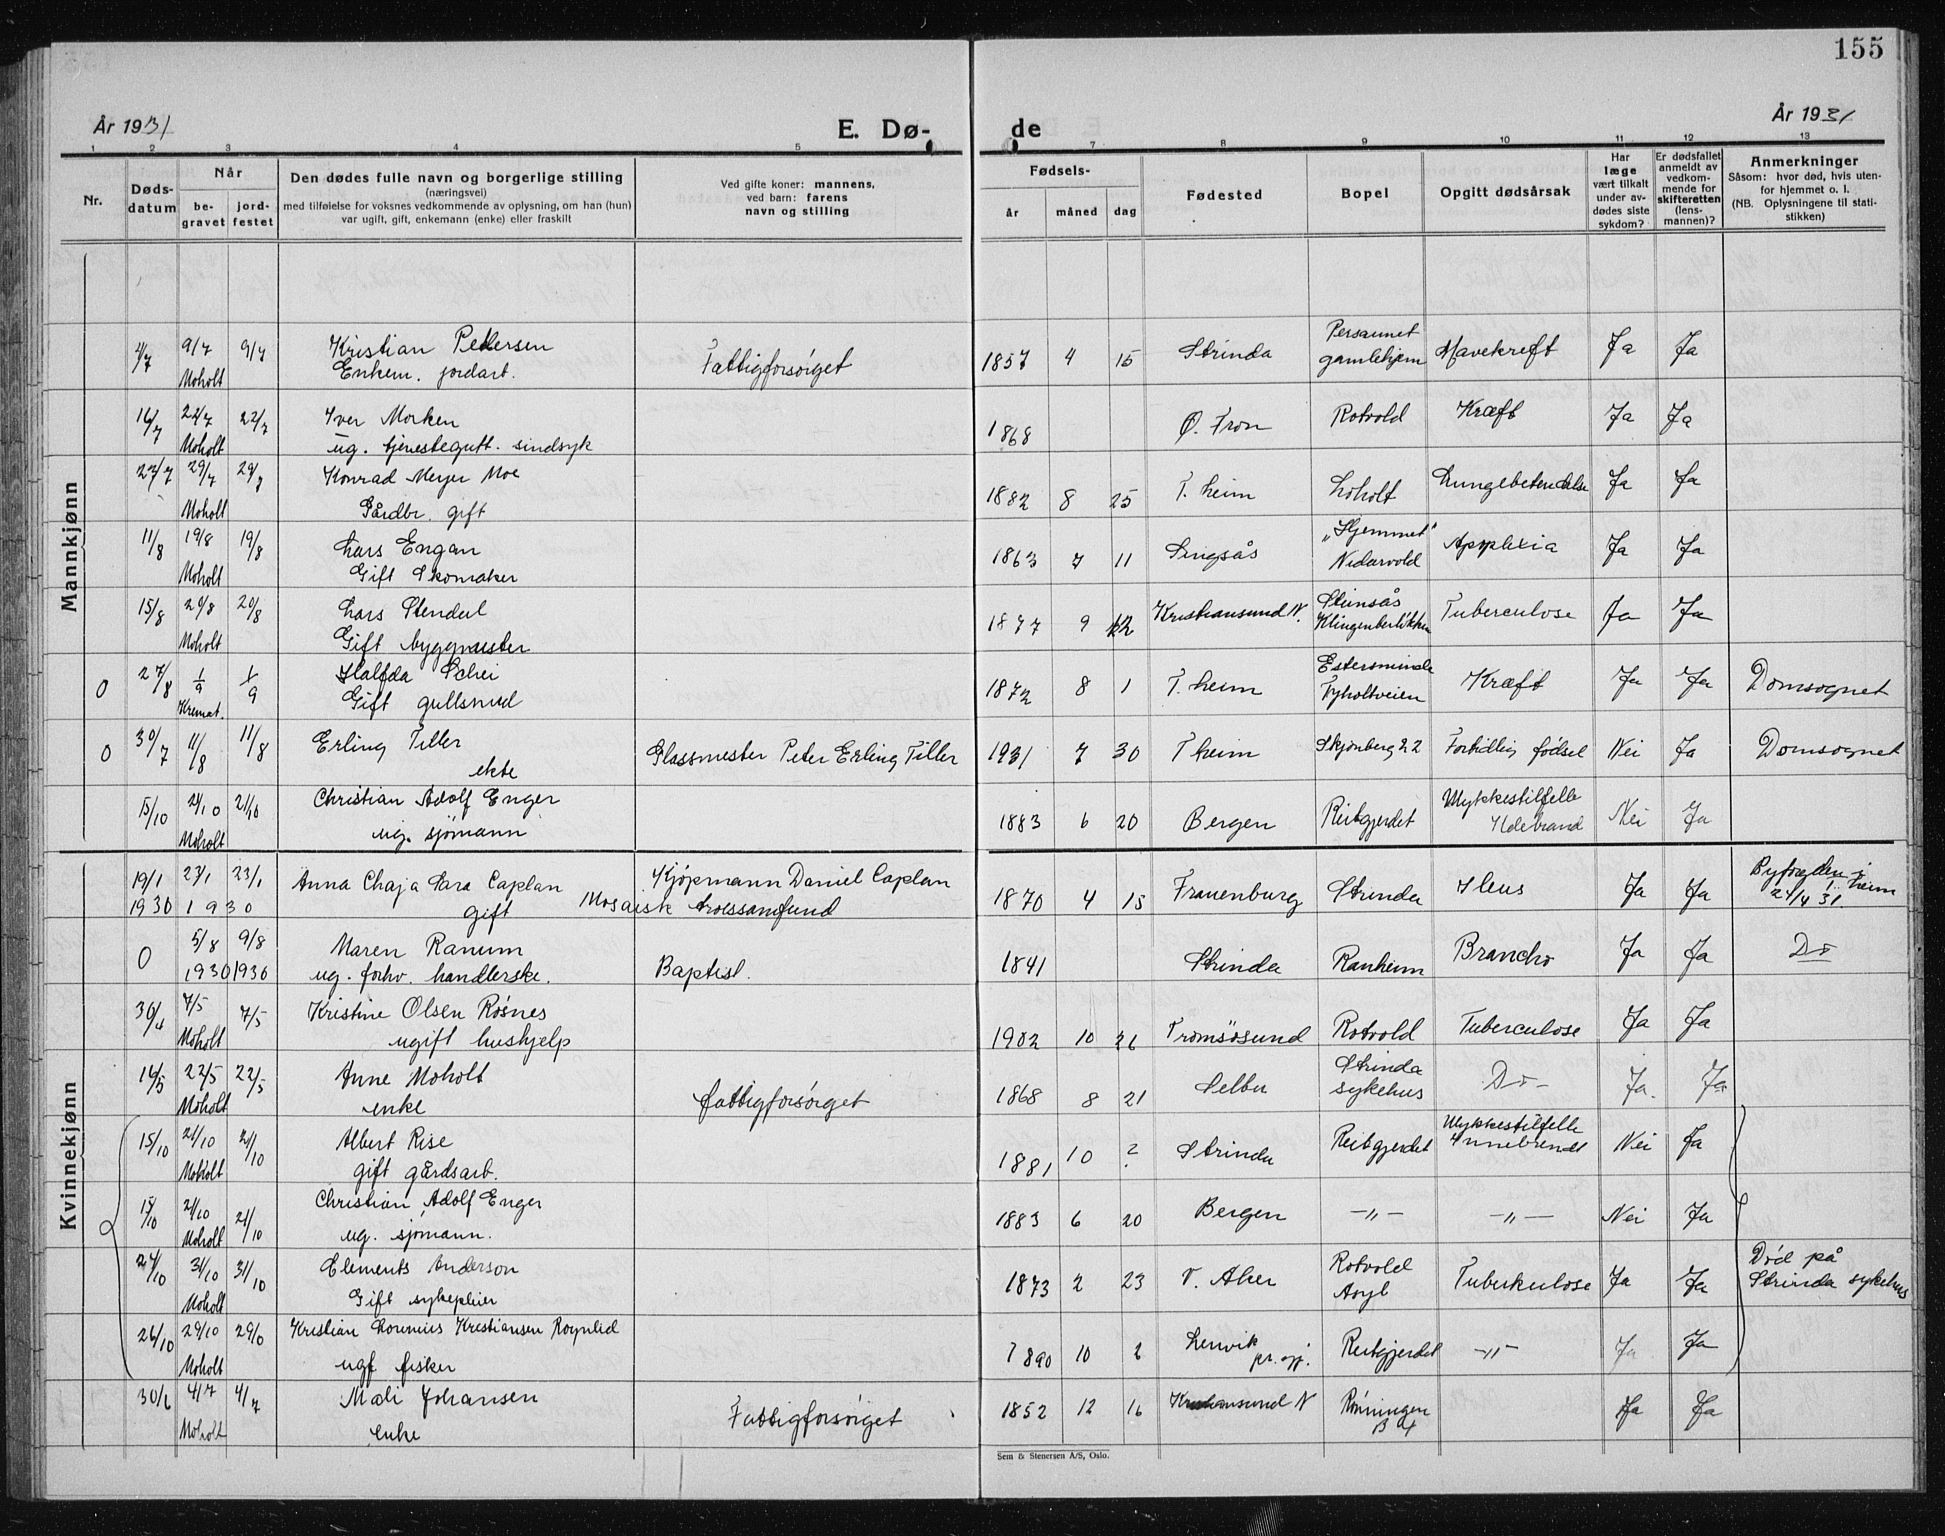 155
År 1931
E. Dø-
de
År 1931
1 2 3 4 5 7 8 9 10 11 12 13
Nr.
Døds-
datum
Når
be-
gravet
jord-
festet
Den dødes fulle navn og borgerlige stilling
(næringsvei)
med tilføielse for voksnes vedkommende av oplysning, om han (hun)
var ugift, gift, enkemann (enke) eller fraskilt
Ved gifte koner: mannens,
ved barn: farens
navn og stilling
Fødsels-
år måned dag
Fødested
Bopel
Opgitt dødsårsak
Har
læge
vært tilkalt
under av-
dødes siste
sykdom?
Er dødsfallet
anmeldt av
vedkom-
mende for
skifteretten
(lens-
mannen)?
Anmerkninger
Såsom: hvor død, hvis uten-
for hjemmet o. l.
(NB. Oplysningene til stati-
stikken)
Mannkjønn
4/7 9/7 9/7 Kristian Pedersen Fattigforsørget 1857 4 15 Strinda Persaunet Mavekreft Ja Ja
Moholt Enkem. jordarb. gamlehjem
16/7 22/7 22/7 Iver Morken 1868 Ø. Fron Rotvold Kræft Ja Ja
Moholt ug. tjenestegutt. sindsyk
27/7 29/7 29/7 Konrad Meyer Moe 1882 8 25 T.heim Loholt Lungebetendelse Ja Ja
Moholt Gårdbr. gift
11/8 19/8 19/8 Lars Engan 1863 7 11 Singsås „Hjemmet" Apoplexia Ja Ja
Moholt Gift Skomaker Nidarvold
15/8 20/8 20/8 Lars Stendal 1877 9 12 Kristiansund N. Steinsås Tuberculose Ja Ja
Moholt Gift byggmester Klingenberløkken
0 27/8 1/9 1/9 Halfda Schei 1872 8 1 T.heim Estersminde Kræft Ja Ja Domsognet
Kremat. Gift gullsmed Tyholtveien
0 30/7 11/8 11/8 Erling Tiller Glassmester Peter Erling Tiller 1931 7 30 T heim Skjønberg 22 Fortidlig fødsel Nei Ja Domsognet
ekte
15/10 21/10 21/10 Christian Adolf Enger 1883 6 20 Bergen Reitgjerdet Ulykkestilfelle Nei Ja
Moholt ug. sjømann Ildebrand
Kvinnekjønn
19/1 23/1 23/1 Anna Chaja Sara Caplan Kjøpmann Daniel Caplan 1870 4 15 Frauenburg Strinda Ileus Ja Ja Byfogden i T.heim
1930 1930 gift Mosaisk trossamfund 21/4 31.
0 5/8 9/8 Maren Ranum Baptist. 1841 Strinda Ranheim Broncho Ja Ja Do
1930 1930 ug. forhv. handlerske.
30/4 7/5 7/5 Kristine Olsen Røsnes 1902 10 26 Tromsøsund Rotvold Tuberculose Ja Ja
Moholt ugift hushjelp
14/5 22/5 22/5 Anne Moholt Fattigforsørget 1868 8 21 Selbu Strinda Do - Ja. Ja
Moholt enke sykehus
15/10 21/10 21/10 Albert Rise 1881 10 ? Strinda Reitgjerdet Ulykkestilfelle Nei Ja
Moholt gift gårdsarb. Innebrendt
15/10 21/10 21/10 Christian Adolf Enger 1883 6 20 Bergen -„- -„- Nei Ja
Moholt ug. sjømann.
24/10 31/10 31/10 Elements Anderson 1873 2 23 V. Aker Rotvold Tuberkulose Ja Ja Død på
Moholt Gift sykepleier Asyl Strinda sykehus
26/10 29/10 29/0 Kristian Lorenius Kristiansen Røynlid 1890 10 2 Lenvik Reitgjerdet -„- Ja Ja
Moholt ugf fisker pr. gj.
30/6 4/7 4/7 Mali Johansen Fattigforsørget 1852 12 16 Kristiansund N Rønningen Ja Ja
Moholt enke
Sem & Stenersen A/S, Oslo.